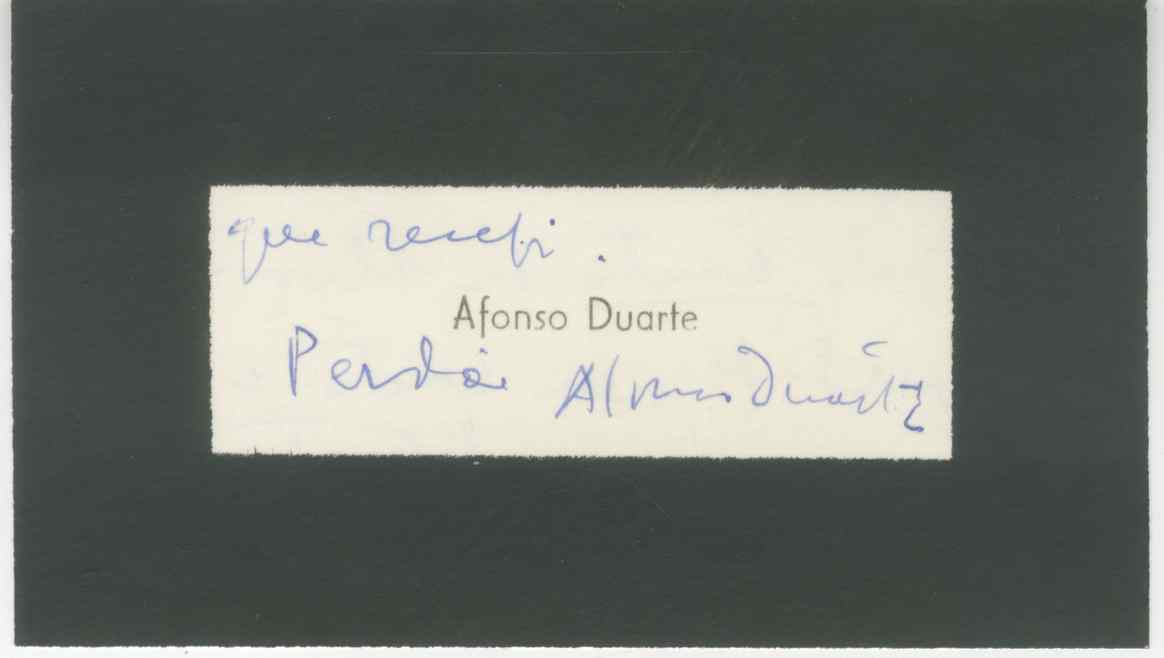 que recebi.
Afonso Duarte
Perdoe Afonso Duarte